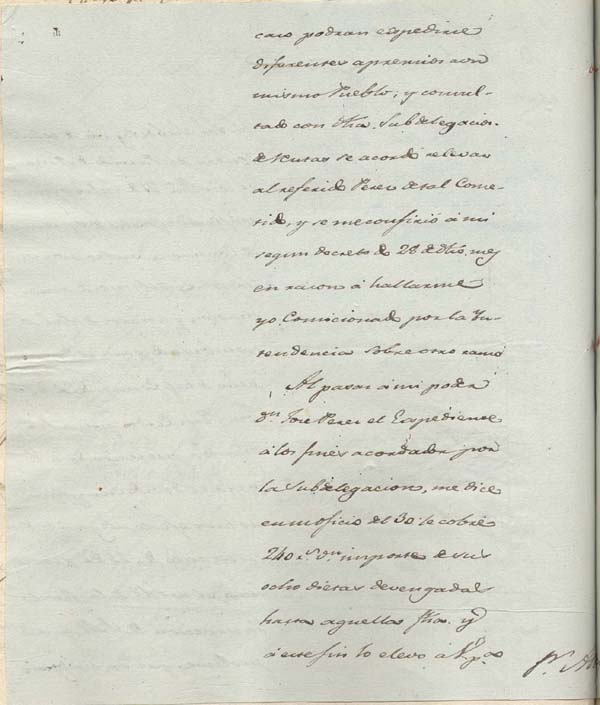 caso podran expedirse
diferentes apremios a un
mismo Pueblo; y consul-
tado con dha. Subdelegacion.
de Rentas se acordó relevar
al referido Perez de tal Come-
tido, y se me confirió á mi
segun decreto de 28 de dho. mes
en razon á hallarme
yo Comicionado por la In-
tendencia sobre otro ramo
Al pasar á mi poder
Dn. José Perez el Expediente
á los fines acordados por
la Subdelegacion, me dice
en un oficio del 30 le cobre
240 rs. vn. importe de sus
ocho dietas devengadas
hasta aquella fha. y
á ese fin lo elevo á